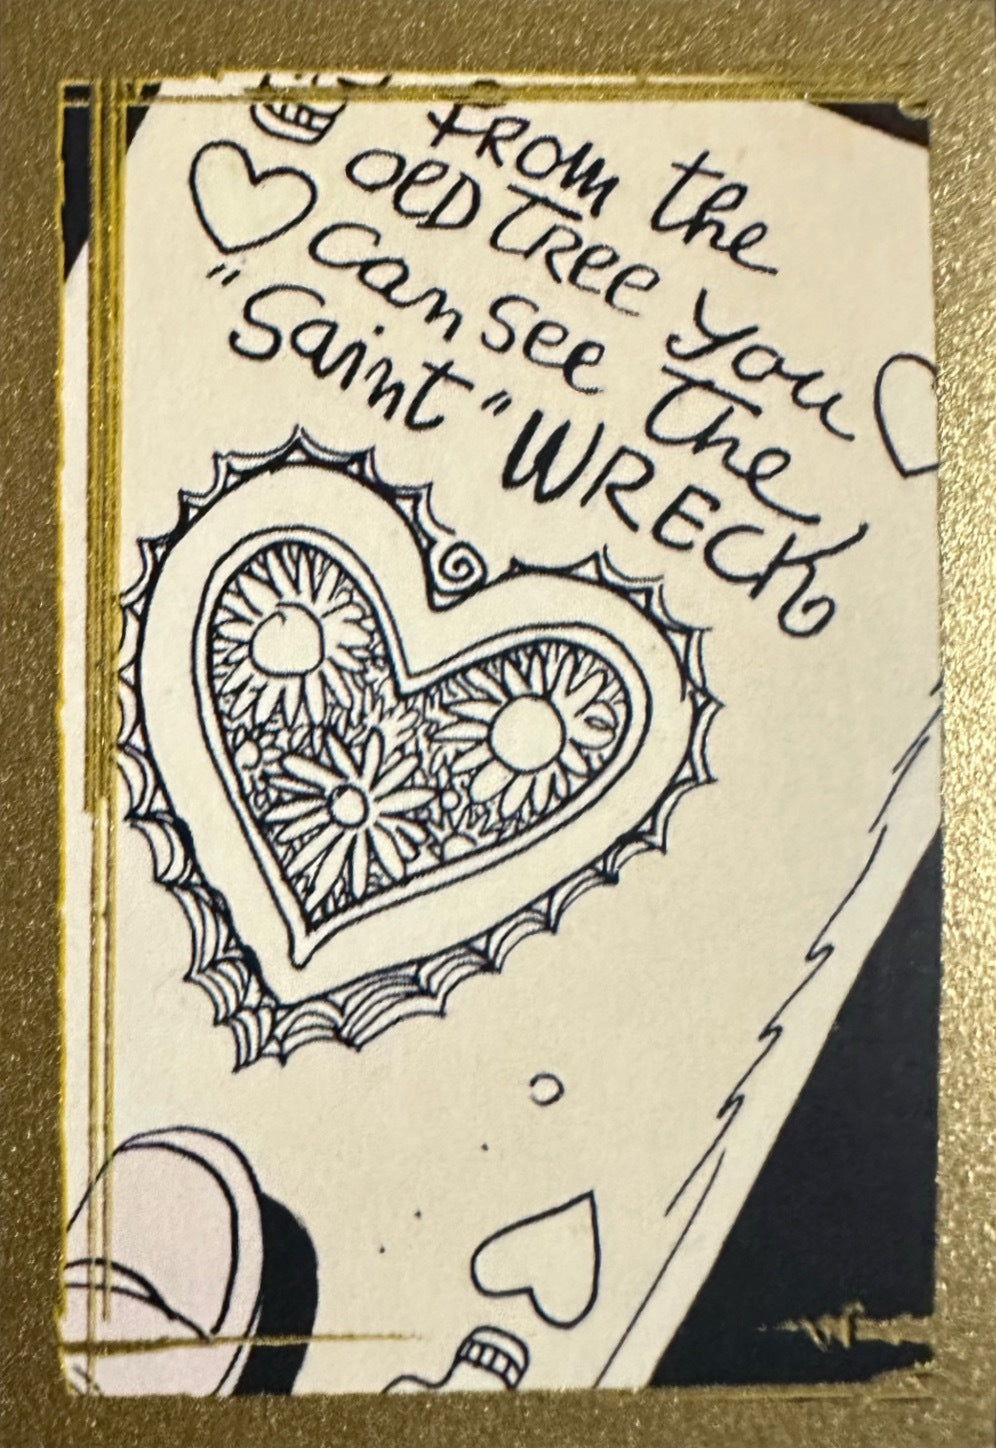 FROM the
OLD TREE you
can see The
"Saint" WRECK